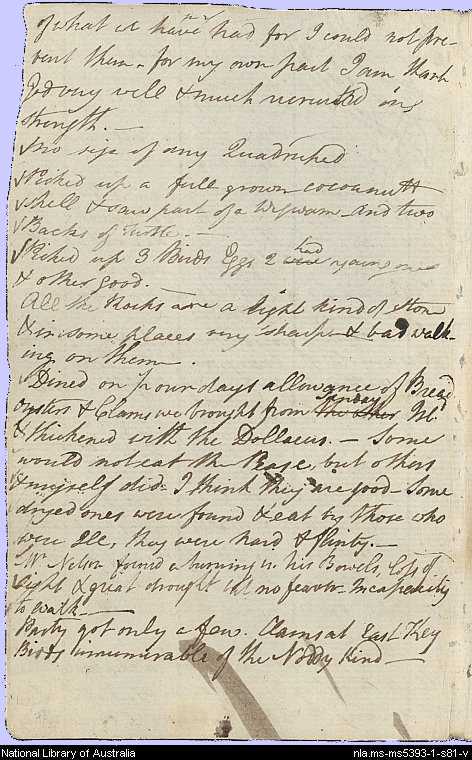 of what we have had for I could not pre-
vent them - for my own part I am thank
God very well & much recruited in
Strength. —
no sign of any Quadruped
Picked up a full grown cocoanutt
shell & saw part of a Wigwam and two
Backs of Turtle. —
Picked up 3 Birds Eggs 2 had young ones
& other good. —
All the Rocks are a light kind of Stone
& in some places very sharp & bad walk-
ing on them.
Dined on pour days allowance of Bread
oysters & Clams we brought from Sunday
& thickened with the Dollacus. — Some
would not eat the Pease, but others
& myself did - I think they are good - Some
dryed ones were found & eat by those who
were Ill, they were hard & flinty. —
Mr. Nelson found a burning in his Bowels, loss of
Sight & great drought but no fever - Incapacity
to walk —
Party got only a few Clams at East Key
Birds innumerable of the Noddy Kind —
National Library of Australia
nla.ms-ms5393-1-s81-v